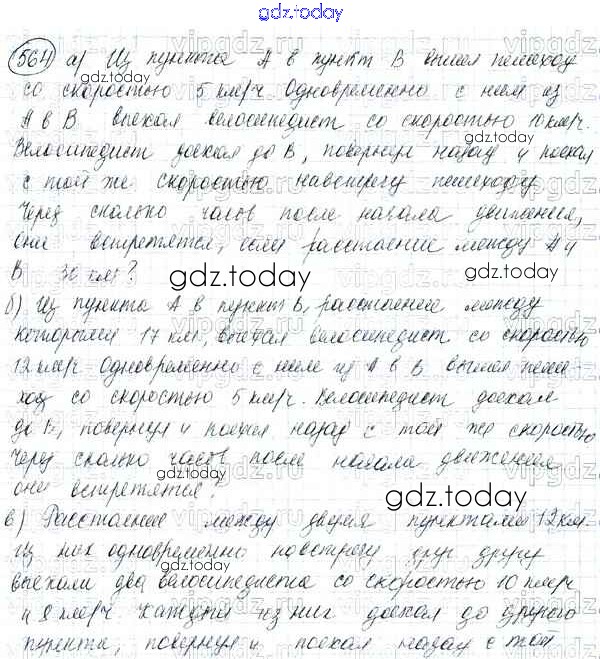 gdz.today
564 а) Из пункта А в пункт В вышел пешеход
со скоростью 5 км/ч. Одновременно с ним из
А в В выехал велосипедист со скоростью 10 км/ч.
Велосипедист доехал до В, повернул назад и поехал
с той же скоростью навстречу пешеходу.
Через сколько часов после начала движения,
они встретятся, если расстояние между А и
В 30 км?
б) Из пункта А в пункт В, расстояние между
которыми 17 км, выехал велосипедист со скоростью
12 км/ч. Одновременно с ним из А в В вышел пеше-
ход со скоростью 5 км/ч. Велосипедист доехал
до В, повернул и поехал назад с той же скоростью
Через сколько часов после начала движения
они встретятся?
в) Расстояние между двумя пунктами 12 км.
Из них одновременно навстречу друг другу
выехали два велосипедиста со скоростью 10 км/ч
и 8 км/ч. Каждый из них доехал до другого
пункта, повернул и поехал назад с той